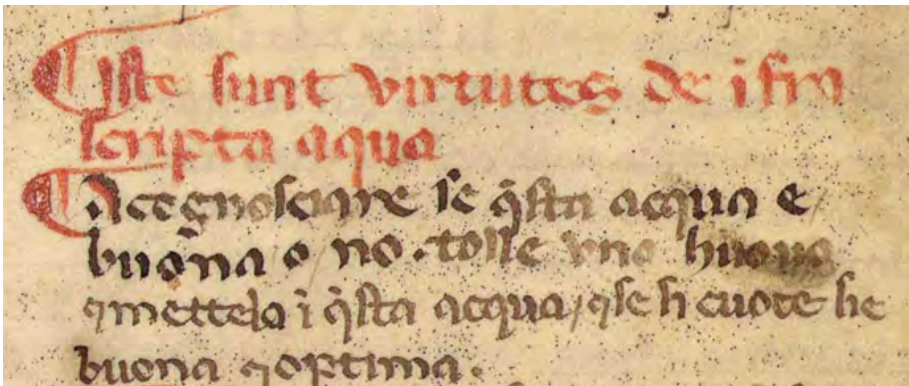 ¶ Iste sunt virtutes de ifra
scripta aqua
¶ Acegnosciare se q̃sta acqua e
buona o no. tolle uno huouo
⁊mettelo ĩ q̃sta acqua / ⁊se li cuoce he
buona ⁊optima.